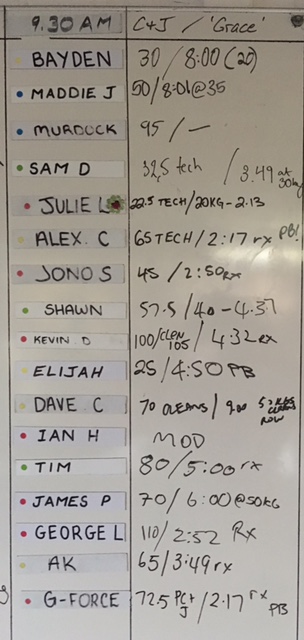 9.30 AM C+J / 'Grace'
BAYDEN 30 / 8:00 (20)
MADDIE J 50/8:01@35
MURDOCK 95 / —
SAM D 32.5 tech / 3.49 at 30kg
JULIE L 22.5 TECH/20KG - 2.13
ALEX. C 65 TECH / 2:17 rx PB!
JONO S 45 / 2:50 Rx
SHAWN 57.5 / 40 - 4.37
KEVIN D 100/CLEN 105 / 4:32 rx
ELIJAH 25/4:50 PB
DAVE C 70 CLEANS /
IAN H MOD
TIM 80/5:00 rx
JAMES P 70 / 6:00@50KG
GEORGE L 110/2:52 Rx
AK 65/3:49 rx
G-FORCE 72.5 PC+J / 2.17 rx PB